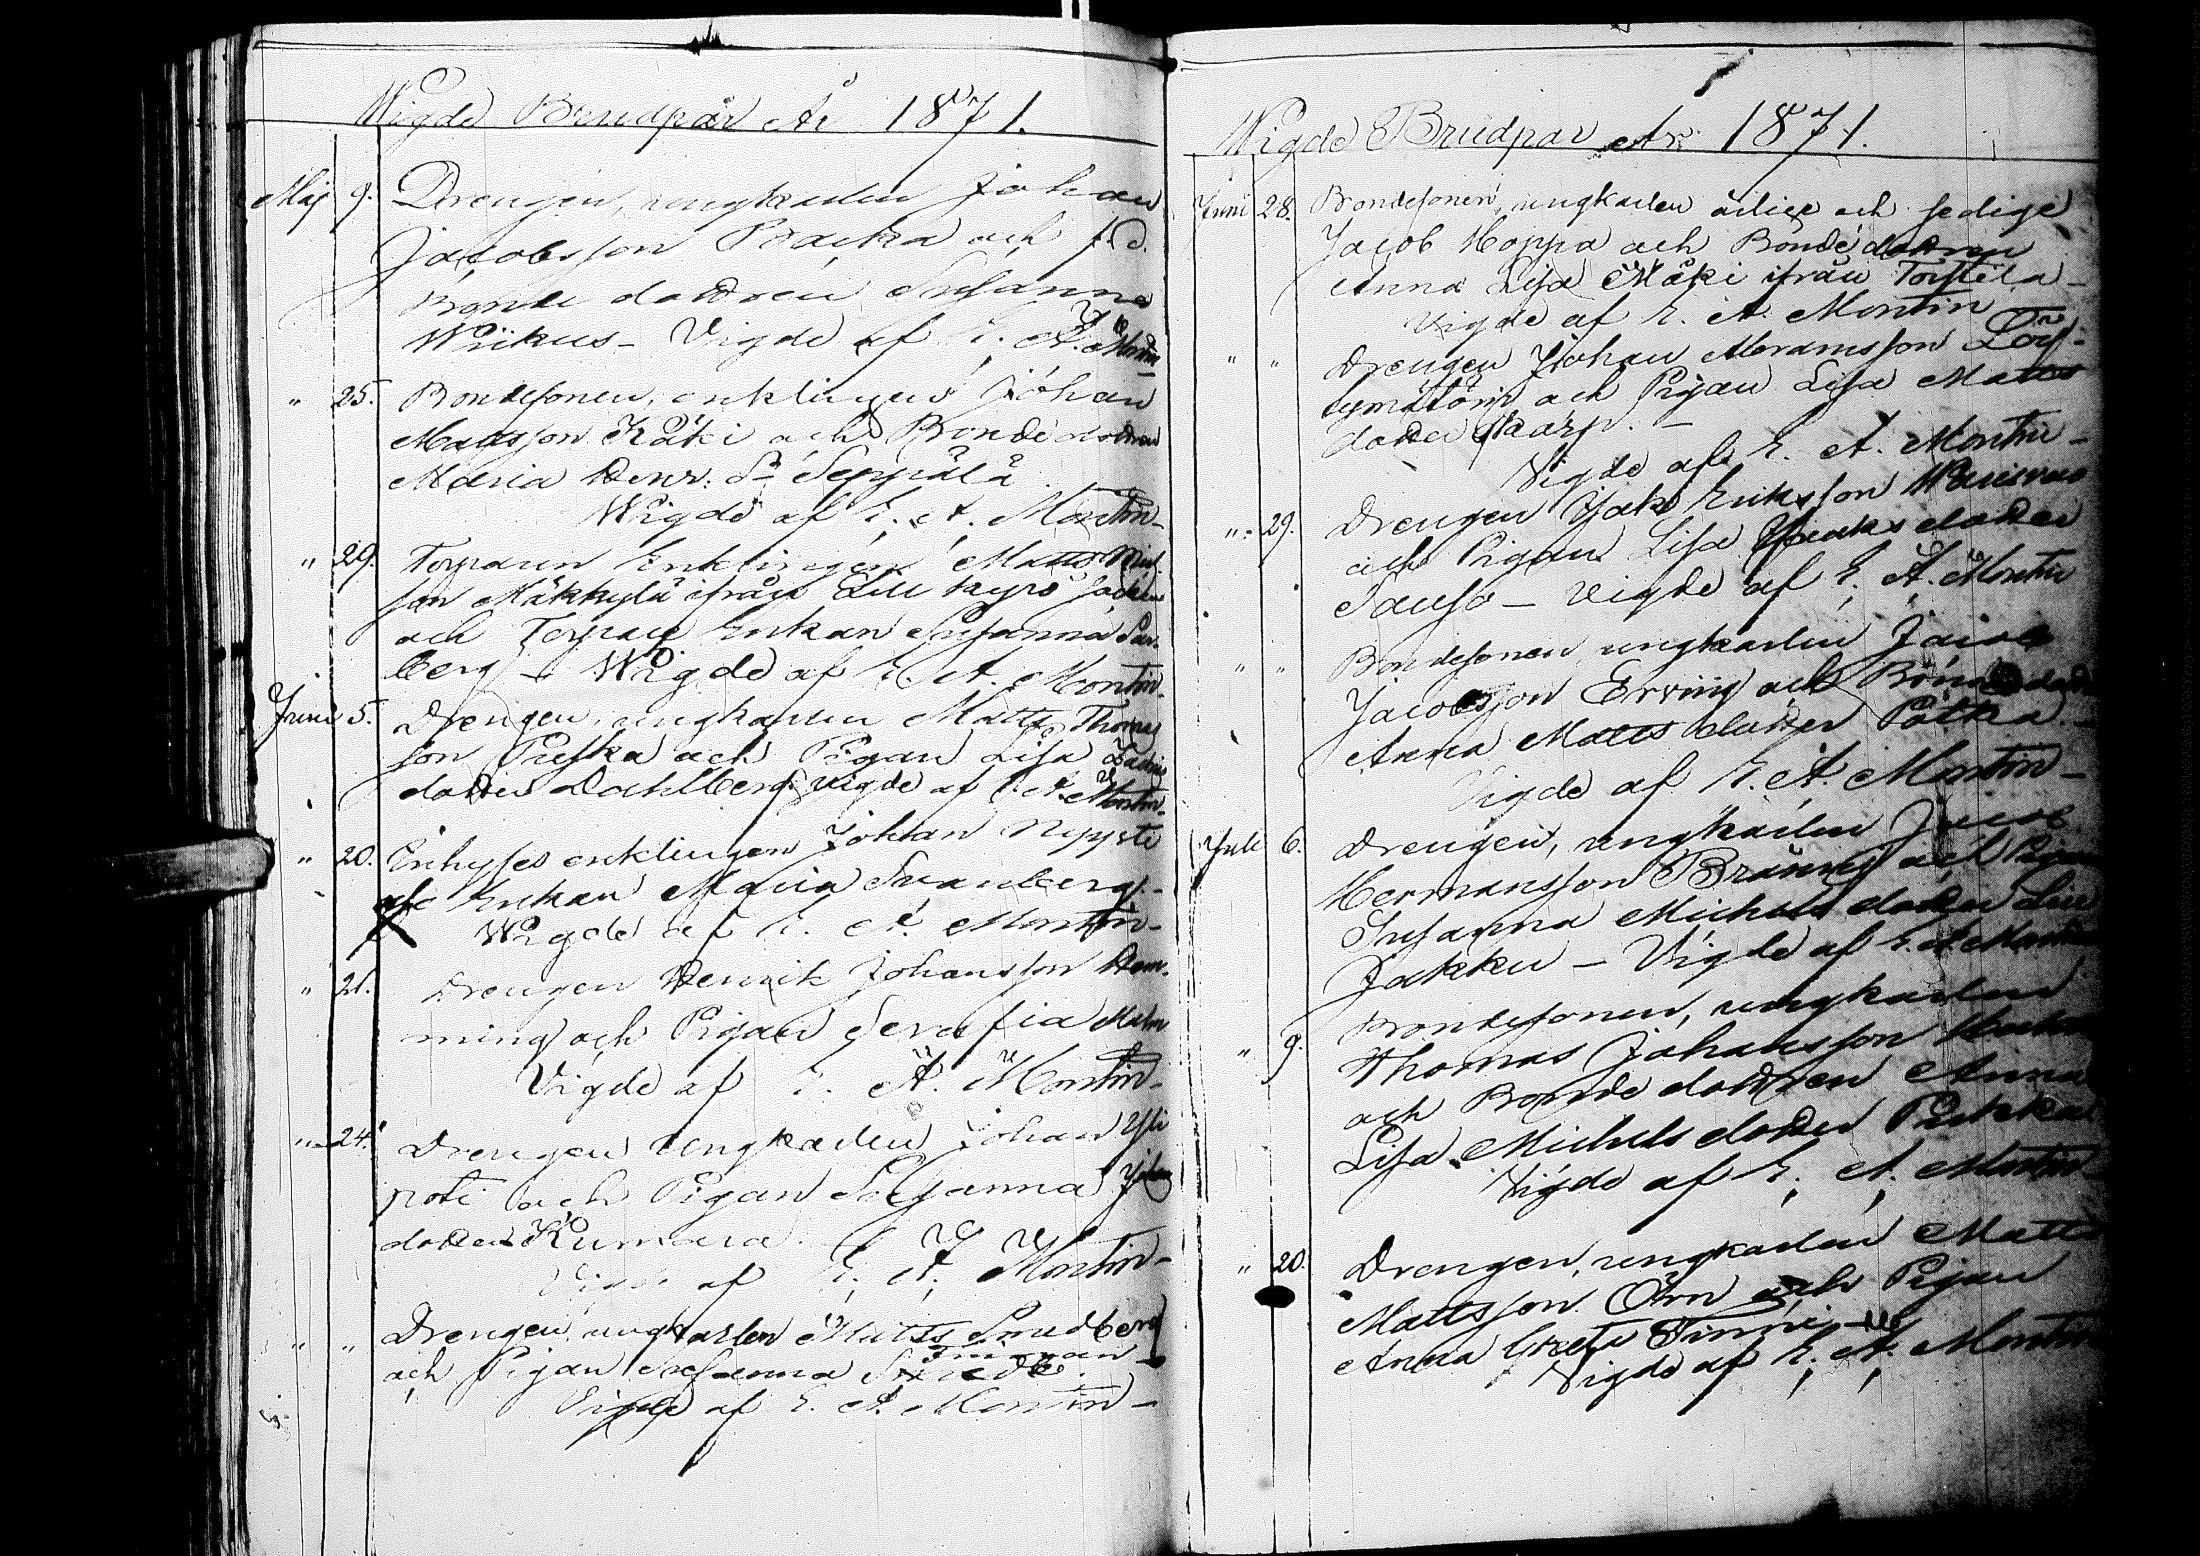 Wigde Brudpar År 1871.
Maj 9. Drengen, ungkarlen Johan
Jacobsson Backa och f.d.
Bonde dottren Susanna
Wiikus – Vigde af E. A. Montin
" 25. Bondesonen, enklingen Johan
Mattsson Käki och Bonde dottren
Maria Henr. Dr Seppälä
Wigde af E. A. Montin –
" 29. Torparen Enklingen Matts Mich.
son Mäkkylä ifrån Lill Kyro Socken
och Torpare Enkan Susanna
berg – Wigde af E. A. Montin –
Juni 5. Drengen, ungkarlen Matts Thomas
son Puska och Pigan Lisa
dotter Dahlberg. Vigde af E. A. Montin –
" 20. Enhyses enklingen Johan Nyysti
Enkan Maria Svanberg –
Wigde af E. A. Montin –
" 21. Drengen Henrik Johansson Hem-
ming och Pigan Serafia
Vigde af E. A. Montin –
" 24. Drengen ungkarlen Johan Yli
poti och Pigan Susanna
dotter Kumara.
Vigde af E. A. Montin –
" " Drengen, ungkarlen Matts Smedberg
och Pigan Susanna
Vigde af E. A. Montin –
Wigde Brudpar År 1871.
Juni 28. Bondesonen, ungkarlen ärlige och sedige
Jacob Hoppa och Bonde dottren
Anna Lisa Mäki ifrån Torstila –
Vigde af E. A. Montin
" " Drengen Johan Abramsson
och Pigan Lisa Matts
dotter Skarp. –
Vigde af E. A. Montin –
" 29. Drengen Jakob Eriksson
och Pigan Lisa Isaks dotter
Sauso – Vigde af E. A. Montin
" " Bondesonen ungkarlen Jacob
Jacobsson Erving och Bonde
Anna Matts dotter Pätkä. –
Vigde af E. A. Montin –
Juli 6. Drengen, ungkarlen Jacob
Hermansson Bränn och Pigan
Susanna Michels dotter
Jakku – Vigde af E. A. Montin
" 9. Bondesonen, ungkarlen
Thomas Johansson
och Bonde dottren Anna
Lisa Michels dotter Pukkal
Vigde af E. A. Montin –
" 20. Drengen, ungkarlen Matts
Mattsson Örn och Pigan
Anna Greta Finni –
Vigde af E. A. Montin